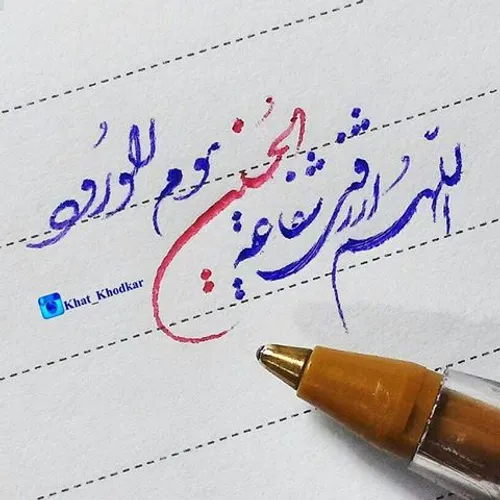 اللهم ارزقنی شفاعة الحسین یوم الورود
Khat_Khodkar